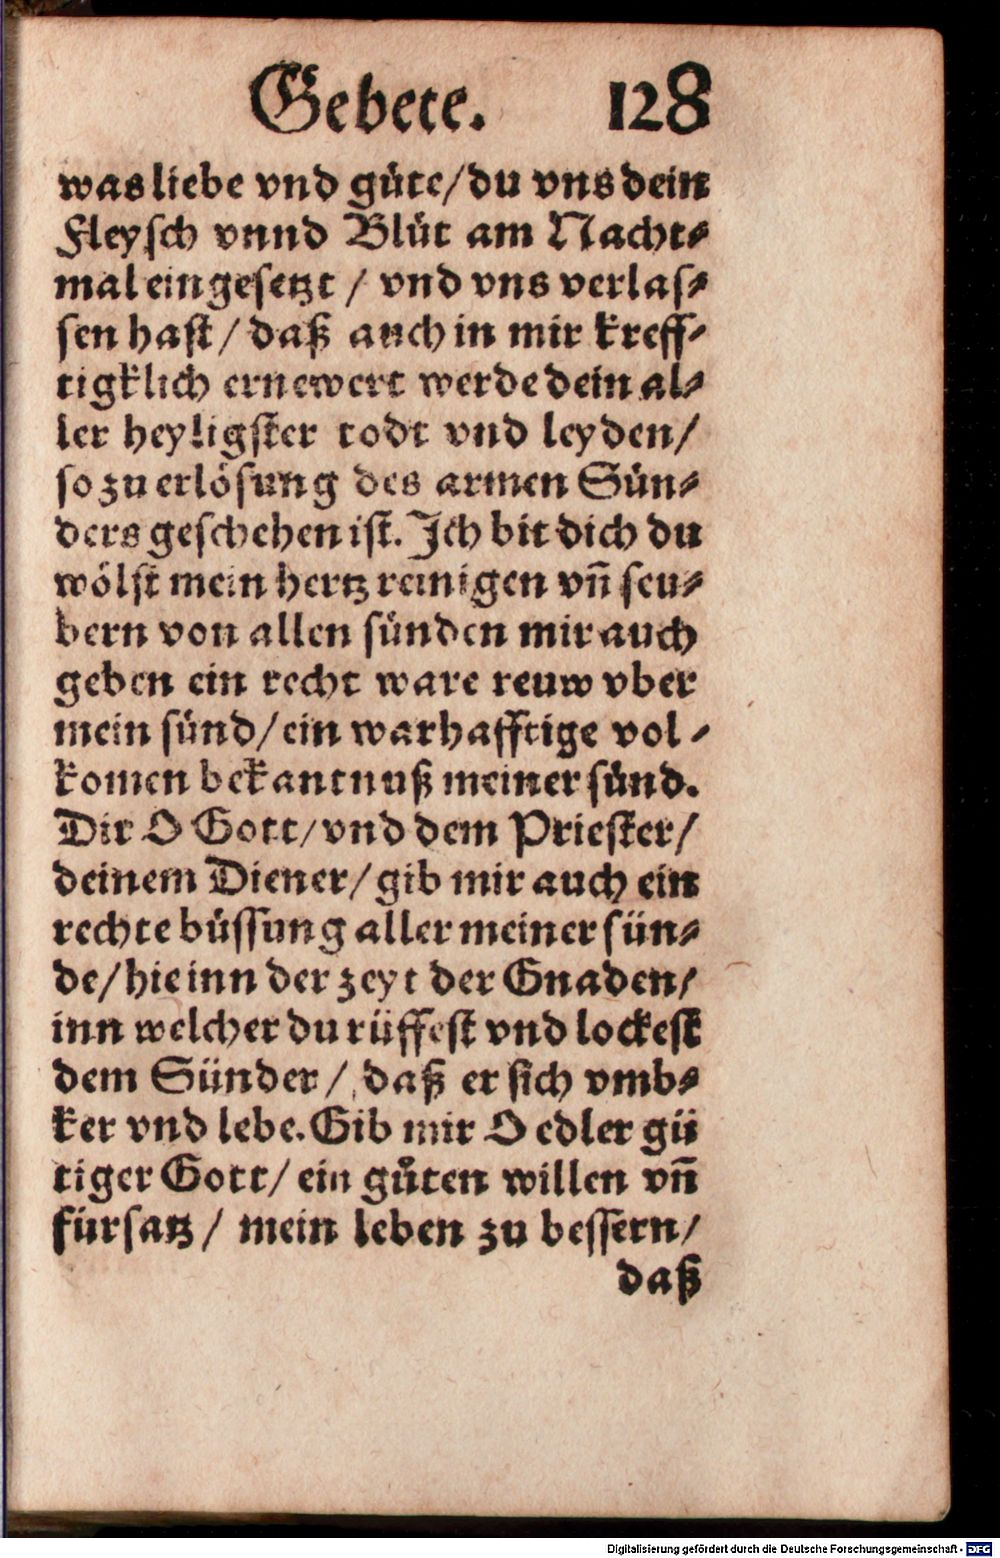 Gebete. 128
was liebe vnd güte/du vns dein
Fleysch vnnd Blůt am Nacht⸗
mal eingesetzt / vnd vns verlas⸗
sen hast/ daß auch in mir kreff⸗
tigklich ernewert werde dein al⸗
ler heyligster todt vnd leyden/
so zu erlösung des armen Sün⸗
ders geschehen ist. Ich bit dich du
wölst mein hertz reinigen vñ seu⸗
bern von allen sünden mir auch
geben ein recht ware reuw vber
mein sünd/ein warhafftige vol⸗
komen bekantnuß meiner sünd.
Dir O Gott/vnd dem Priester/
deinem Diener/gib mir auch ein
rechte büssung aller meiner sün⸗
de/hie inn der zeyt der Gnaden/
inn welcher du rüffest vnd lockest
dem Sünder/ daß er sich vmb⸗
ker vnd lebe. Gib mir O edler gü
tiger Gott/ ein gůten willen vñ
fürsatz/ mein leben zu bessern/
daß
Digitalisierung gefördert durch die Deutsche Forschungsgemeinschaft - DFG